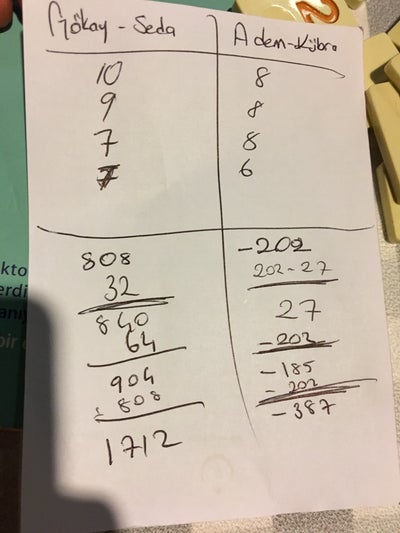 Gökay - Seda
Adem-Kübra
10
9
7
7
8
8
8
6
808
32
840
64
904
808
1712
-202
202-27
27
-202
-185
-202
-387